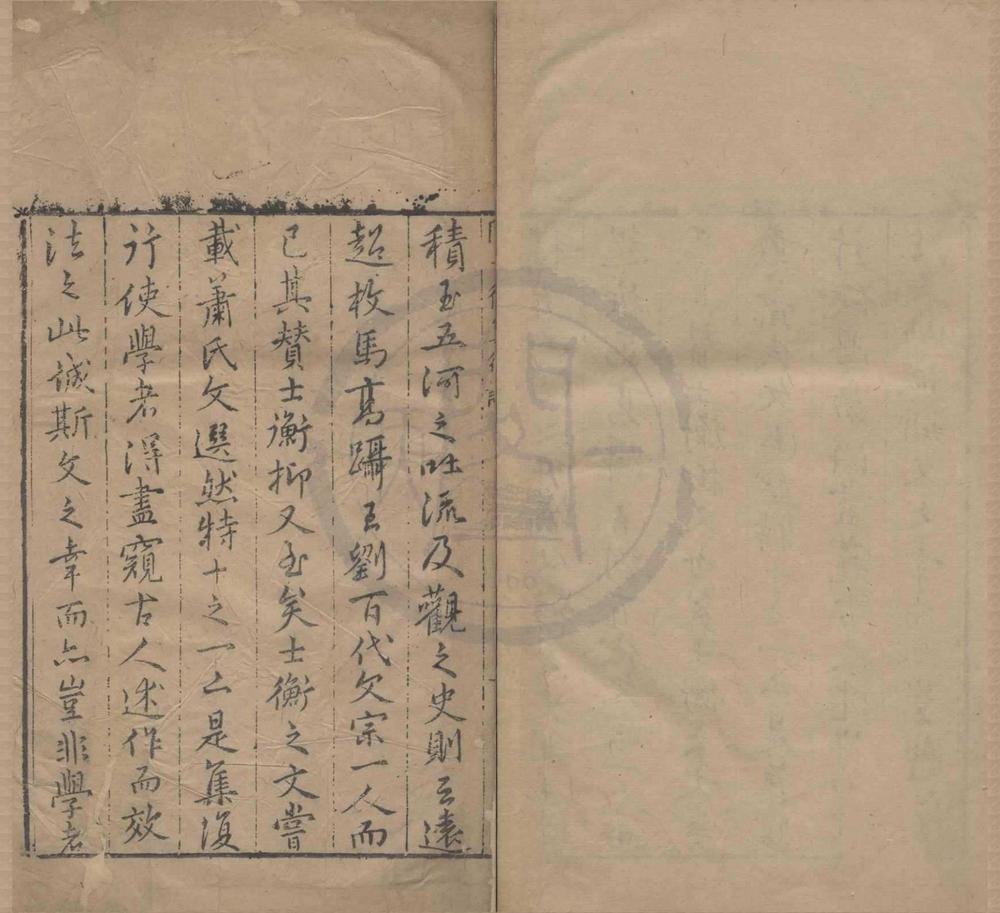 積玉五河之吐流及觀之史則云遠
超枚馬高躡王劉百代文宗一人而
已其贊士衡抑又至矣士衡之文嘗
載蕭氏文選然特十之一二是集復
行使學者淂盡窺古人述作而效
法之此誠斯文之幸而亦豈非學者